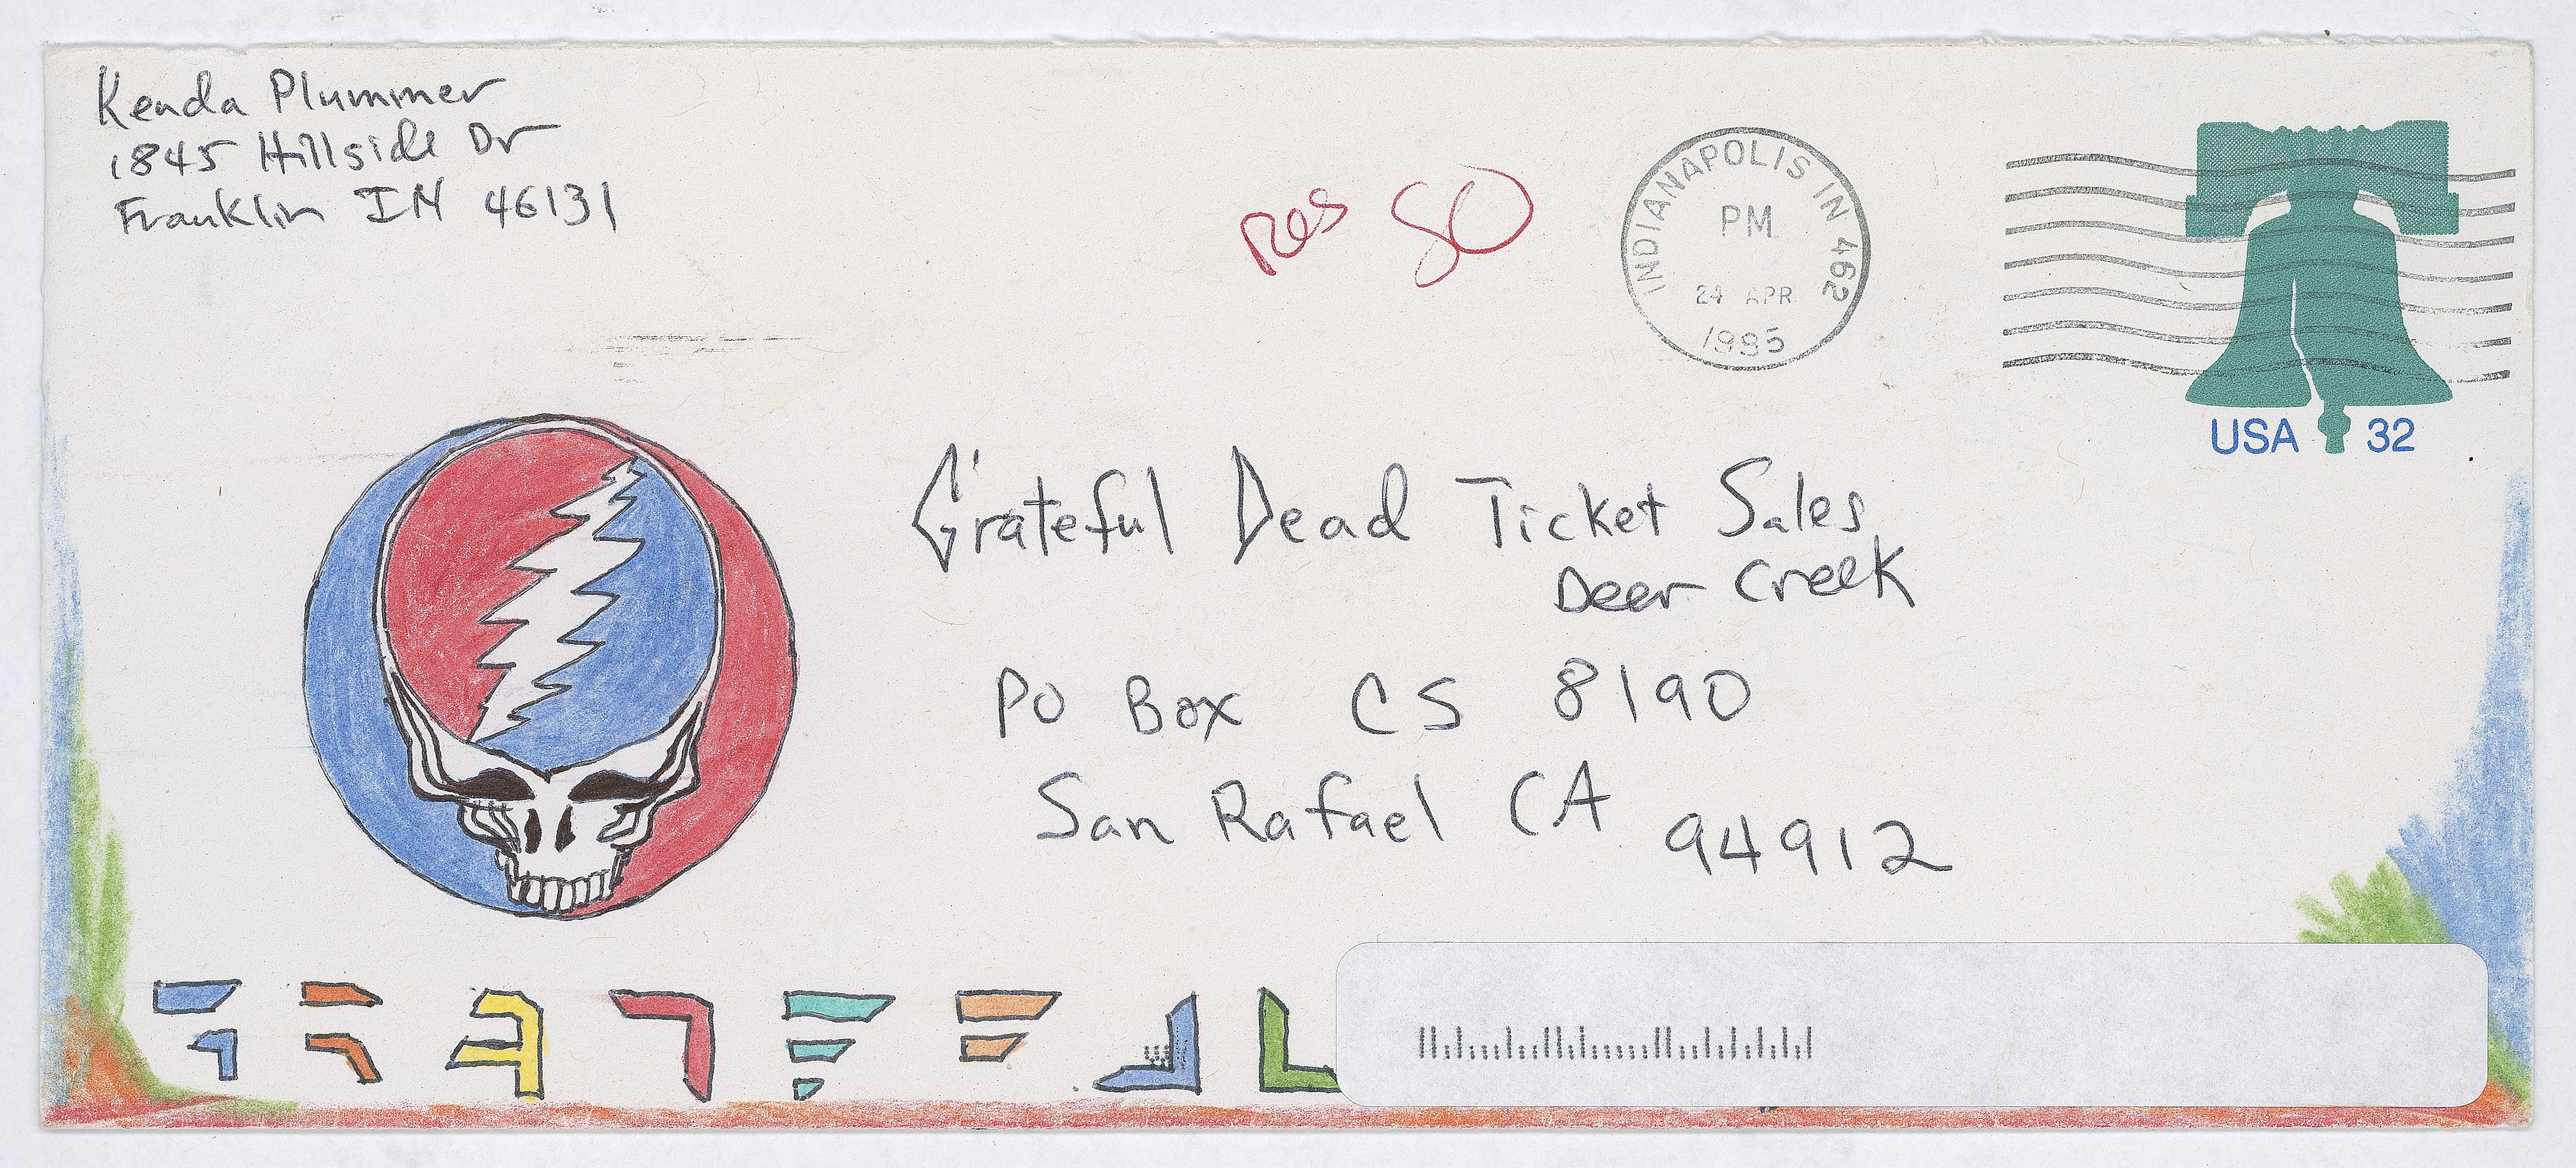 Kenda Plummer
1845 Hillside Dr
Franklin IN 46131
Res SO
INDIANAPOLIS IN 462
PM
24 APR
1995
USA 32
Grateful Dead Ticket Sales
Deer Creek
PO Box CS 8190
San Rafael CA 94912
GRATEFUL